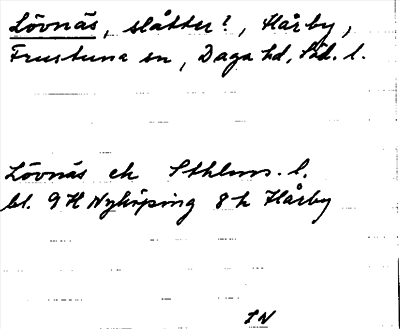 Lövnäs, slåtter?, Hårby,
Frustuna sn, Daga hd, Södl. l.
Lövnäs ek Sthlms. l.
bl. 9H Nyköping 8h Hårby
IN